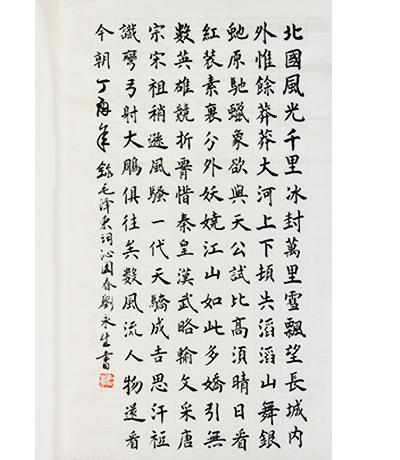 北國風光千里冰封萬里雪飄望長城内
外惟餘莽莽大河上下頓失滔滔山舞銀
虵原馳蠟象欲與天公試比高須晴日看
紅装素裹分外妖嬈江山如此多嬌引無
數英雄競折腰惜秦皇漢武略輸文采唐
宗宋祖稍遜風騷一代天驕成吉思汗衹
識彎弓射大鵰俱往矣數風流人物還看
今朝 丁酉年 錄毛澤東詞沁園春劉永生書